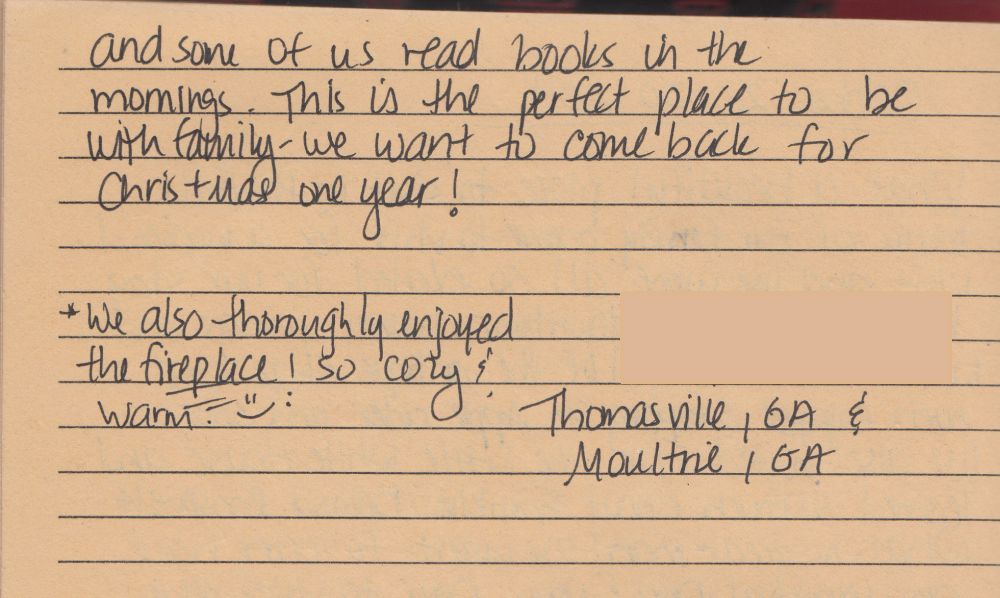 and some of us read books in the
mornings. This is the perfect place to be
with family-we want to come back for
Christmas one year!
*We also thoroughly enjoyed
the fireplace! So cozy &
warm! :)
Thomasville, GA &
Moultrie, GA